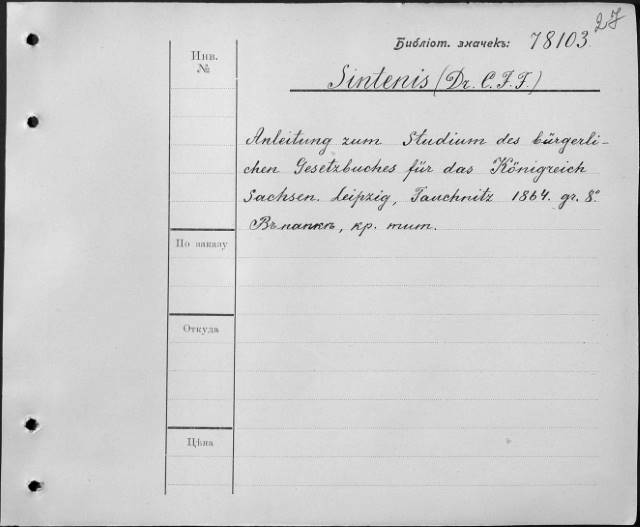 27
Библіот. значекъ: 78103.
Инв.
№
Sintenis (Dr. C. F. F.)
Anleitung zum Studium des bürgerli-
chen Gesetzbuches für das Königreich
Sachsen. Leipzig, Tauchnitz 1864. gr. 8º.
Въ папкѣ, кр. тит.
По заказу
Откуда
Цѣна